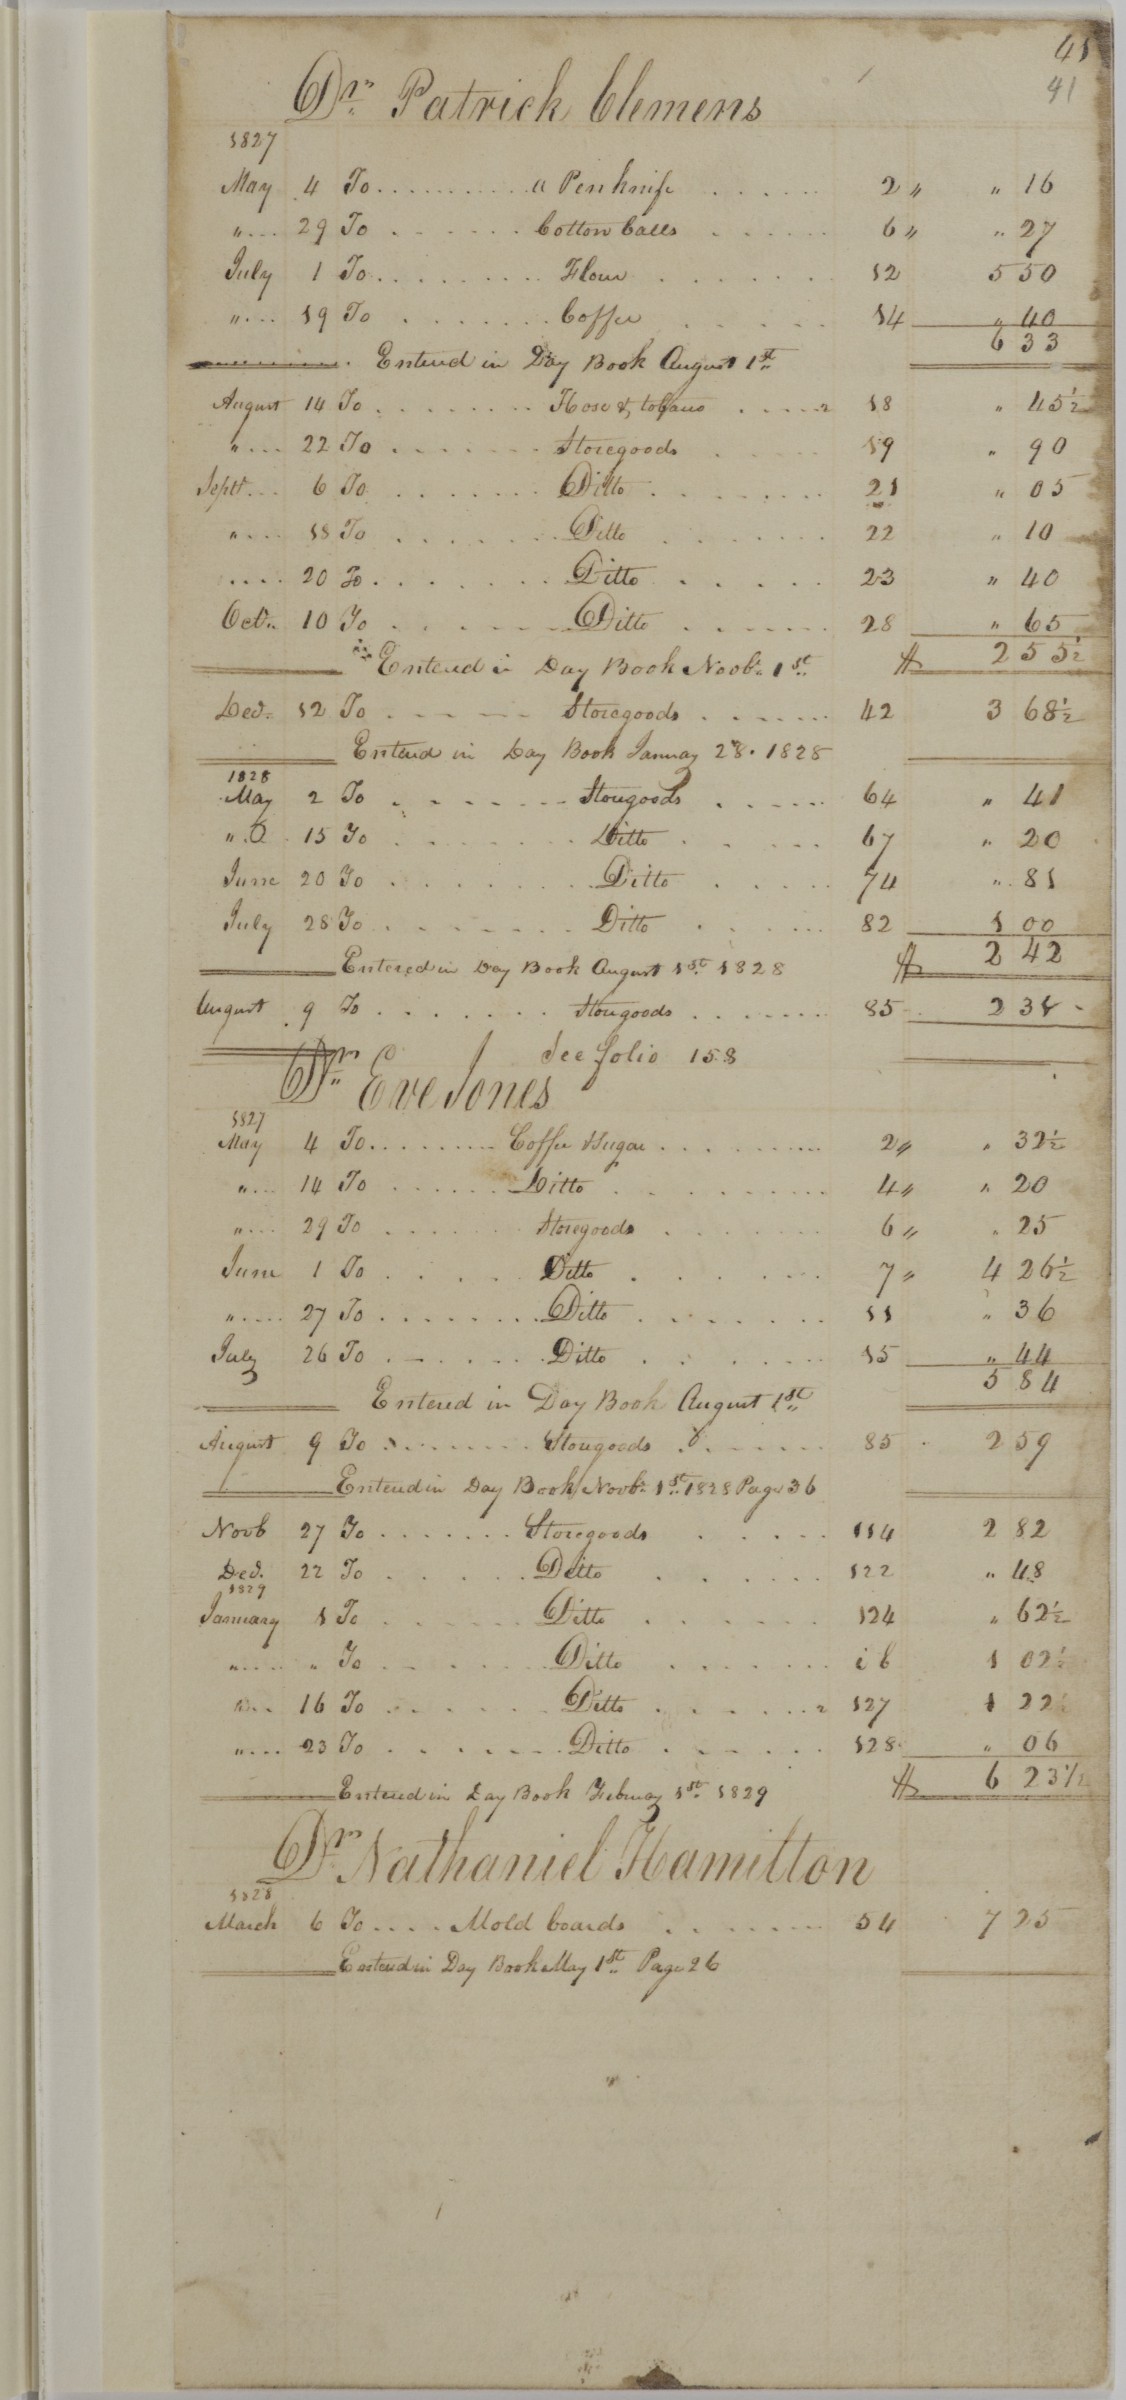 41
41
Dr. Patrick Clemens
1827
May 4 To .......... a Penknife ...... 2 " " 16
" ... 29 To ....... Cotton Balls ...... 6 " " 27
July 1 To ......... Flour ....... 12 5 50
" ... 19 To ....... Coffee ..... 14 " 40
6 33
Entered in Day Book August 1st
August 14 To ........ Hose & tobacco ..... 18 " 45½
" ... 22 To ....... Storegoods ..... 19 " 90
Sept ... 6 To ....... Ditto ........ 21 " 05
" ... 18 To ....... Ditto ....... 22 " 10
.... 20 To ........ Ditto ..... 23 " 40
Oct. 10 To ...... Ditto ...... 28 " 65
Entered in Day Book Novb. 1st $ 2 55½
Dec. 12 To ...... Storegoods ...... 42 3 68½
Entered in Day Book January 28. 1828
1828
May 2 To ....... Storegoods ..... 64 " 41
" . 15 To ........ Ditto ..... 67 " 20
June 20 To ........ Ditto ..... 74 " 81
July 28 To ........ Ditto ...... 82 1 00
Entered in Day Book August 1st 1828 $ 2 42
August 9 To ....... Storegoods ....... 85 2 31
See folio 158
Dr. Eve Jones
1827
May 4 To ......... Coffee Sugar .......... 2 " " 32½
" ... 14 To ...... Ditto ......... 4 " " 20
" ... 29 To ...... Storegoods ....... 6 " " 25
June 1 To ..... Ditto ...... 7 " 4 26½
" .... 27 To ........ Ditto ....... 11 " 36
July 26 To ....... Ditto ...... 15 " 44
5 84
Entered in Day Book August 1st
August 9 To ........ Storegoods ....... 85 2 59
Entered in Day Book Novb. 1st 1828 Page 36
Novb 27 To ....... Storegoods ..... 114 2 82
Dec. 22 To ..... Ditto ...... 122 " 48
1829
January 1 To ..... Ditto ...... 124 " 62½
" .... " To ...... Ditto ....... ib 1 02½
" .. 16 To ...... Ditto ....... 127 1 22½
" ... 23 To ....... Ditto ...... 128 " 06
Entered in Day Book February 1st 1829 $ 6 23½
Dr. Nathaniel Hamilton
1828
March 6 To .... Mold boards ....... 54 7 25
Entered in Day Book May 1st Page 26